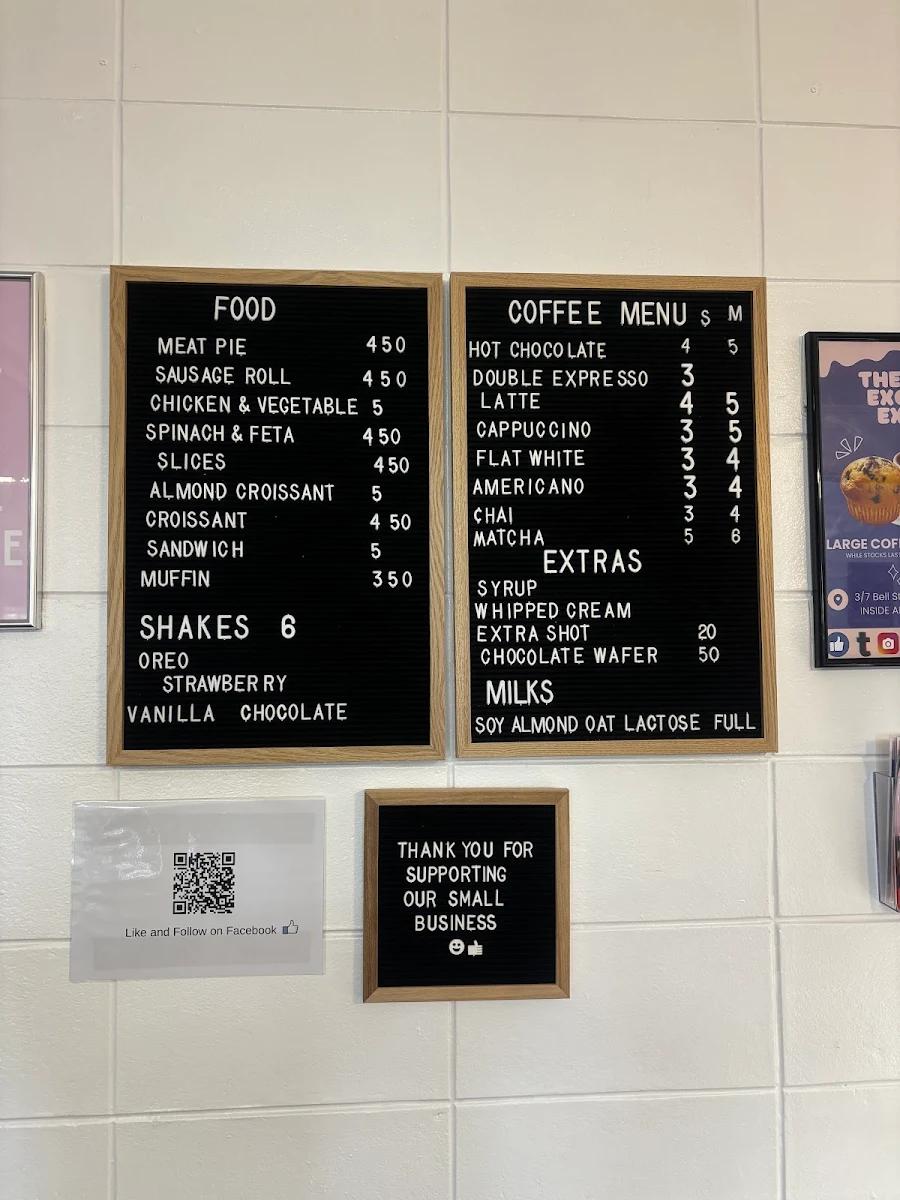 FOOD
MEAT PIE 450
SAUSAGE ROLL 450
CHICKEN & VEGETABLE 5
SPINACH & FETA 450
SLICES 450
ALMOND CROISSANT 5
CROISSANT 4 50
SANDWICH 5
MUFFIN 350
SHAKES 6
OREO
STRAWBERRY
VANILLA CHOCOLATE
COFFEE MENU S M
HOT CHOCOLATE 4 5
DOUBLE EXPRESSO 3
LATTE 4 5
CAPPUCCINO 3 5
FLAT WHITE 3 4
AMERICANO 3 4
CHAI 3 4
MATCHA 5 6
EXTRAS
SYRUP
WHIPPED CREAM
EXTRA SHOT 20
CHOCOLATE WAFER 50
MILKS
SOY ALMOND OAT LACTOSE FULL
Like and Follow on Facebook
THANK YOU FOR
SUPPORTING
OUR SMALL
BUSINESS
E
THE
EXC
EX
LARGE COF
WHILE STOCKS LAS
3/7 Bell S
INSIDE A